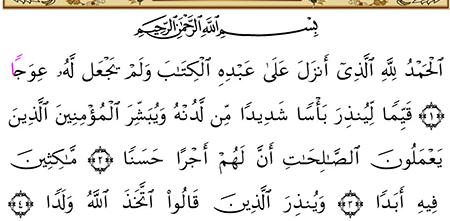 بِسْمِ ٱللَّهِ ٱلرَّحْمَٰنِ ٱلرَّحِيمِ
ٱلْحَمْدُ لِلَّهِ ٱلَّذِىٓ أَنزَلَ عَلَىٰ عَبْدِهِ ٱلْكِتَٰبَ وَلَمْ يَجْعَل لَّهُۥ عِوَجَاۜ
﴿١﴾ قَيِّمًا لِّيُنذِرَ بَأْسًا شَدِيدًا مِّن لَّدُنْهُ وَيُبَشِّرَ ٱلْمُؤْمِنِينَ ٱلَّذِينَ
يَعْمَلُونَ ٱلصَّٰلِحَٰتِ أَنَّ لَهُمْ أَجْرًا حَسَنًا ﴿٢﴾ مَّٰكِثِينَ
فِيهِ أَبَدًا ﴿٣﴾ وَيُنذِرَ ٱلَّذِينَ قَالُوا۟ ٱتَّخَذَ ٱللَّهُ وَلَدًا ﴿٤﴾